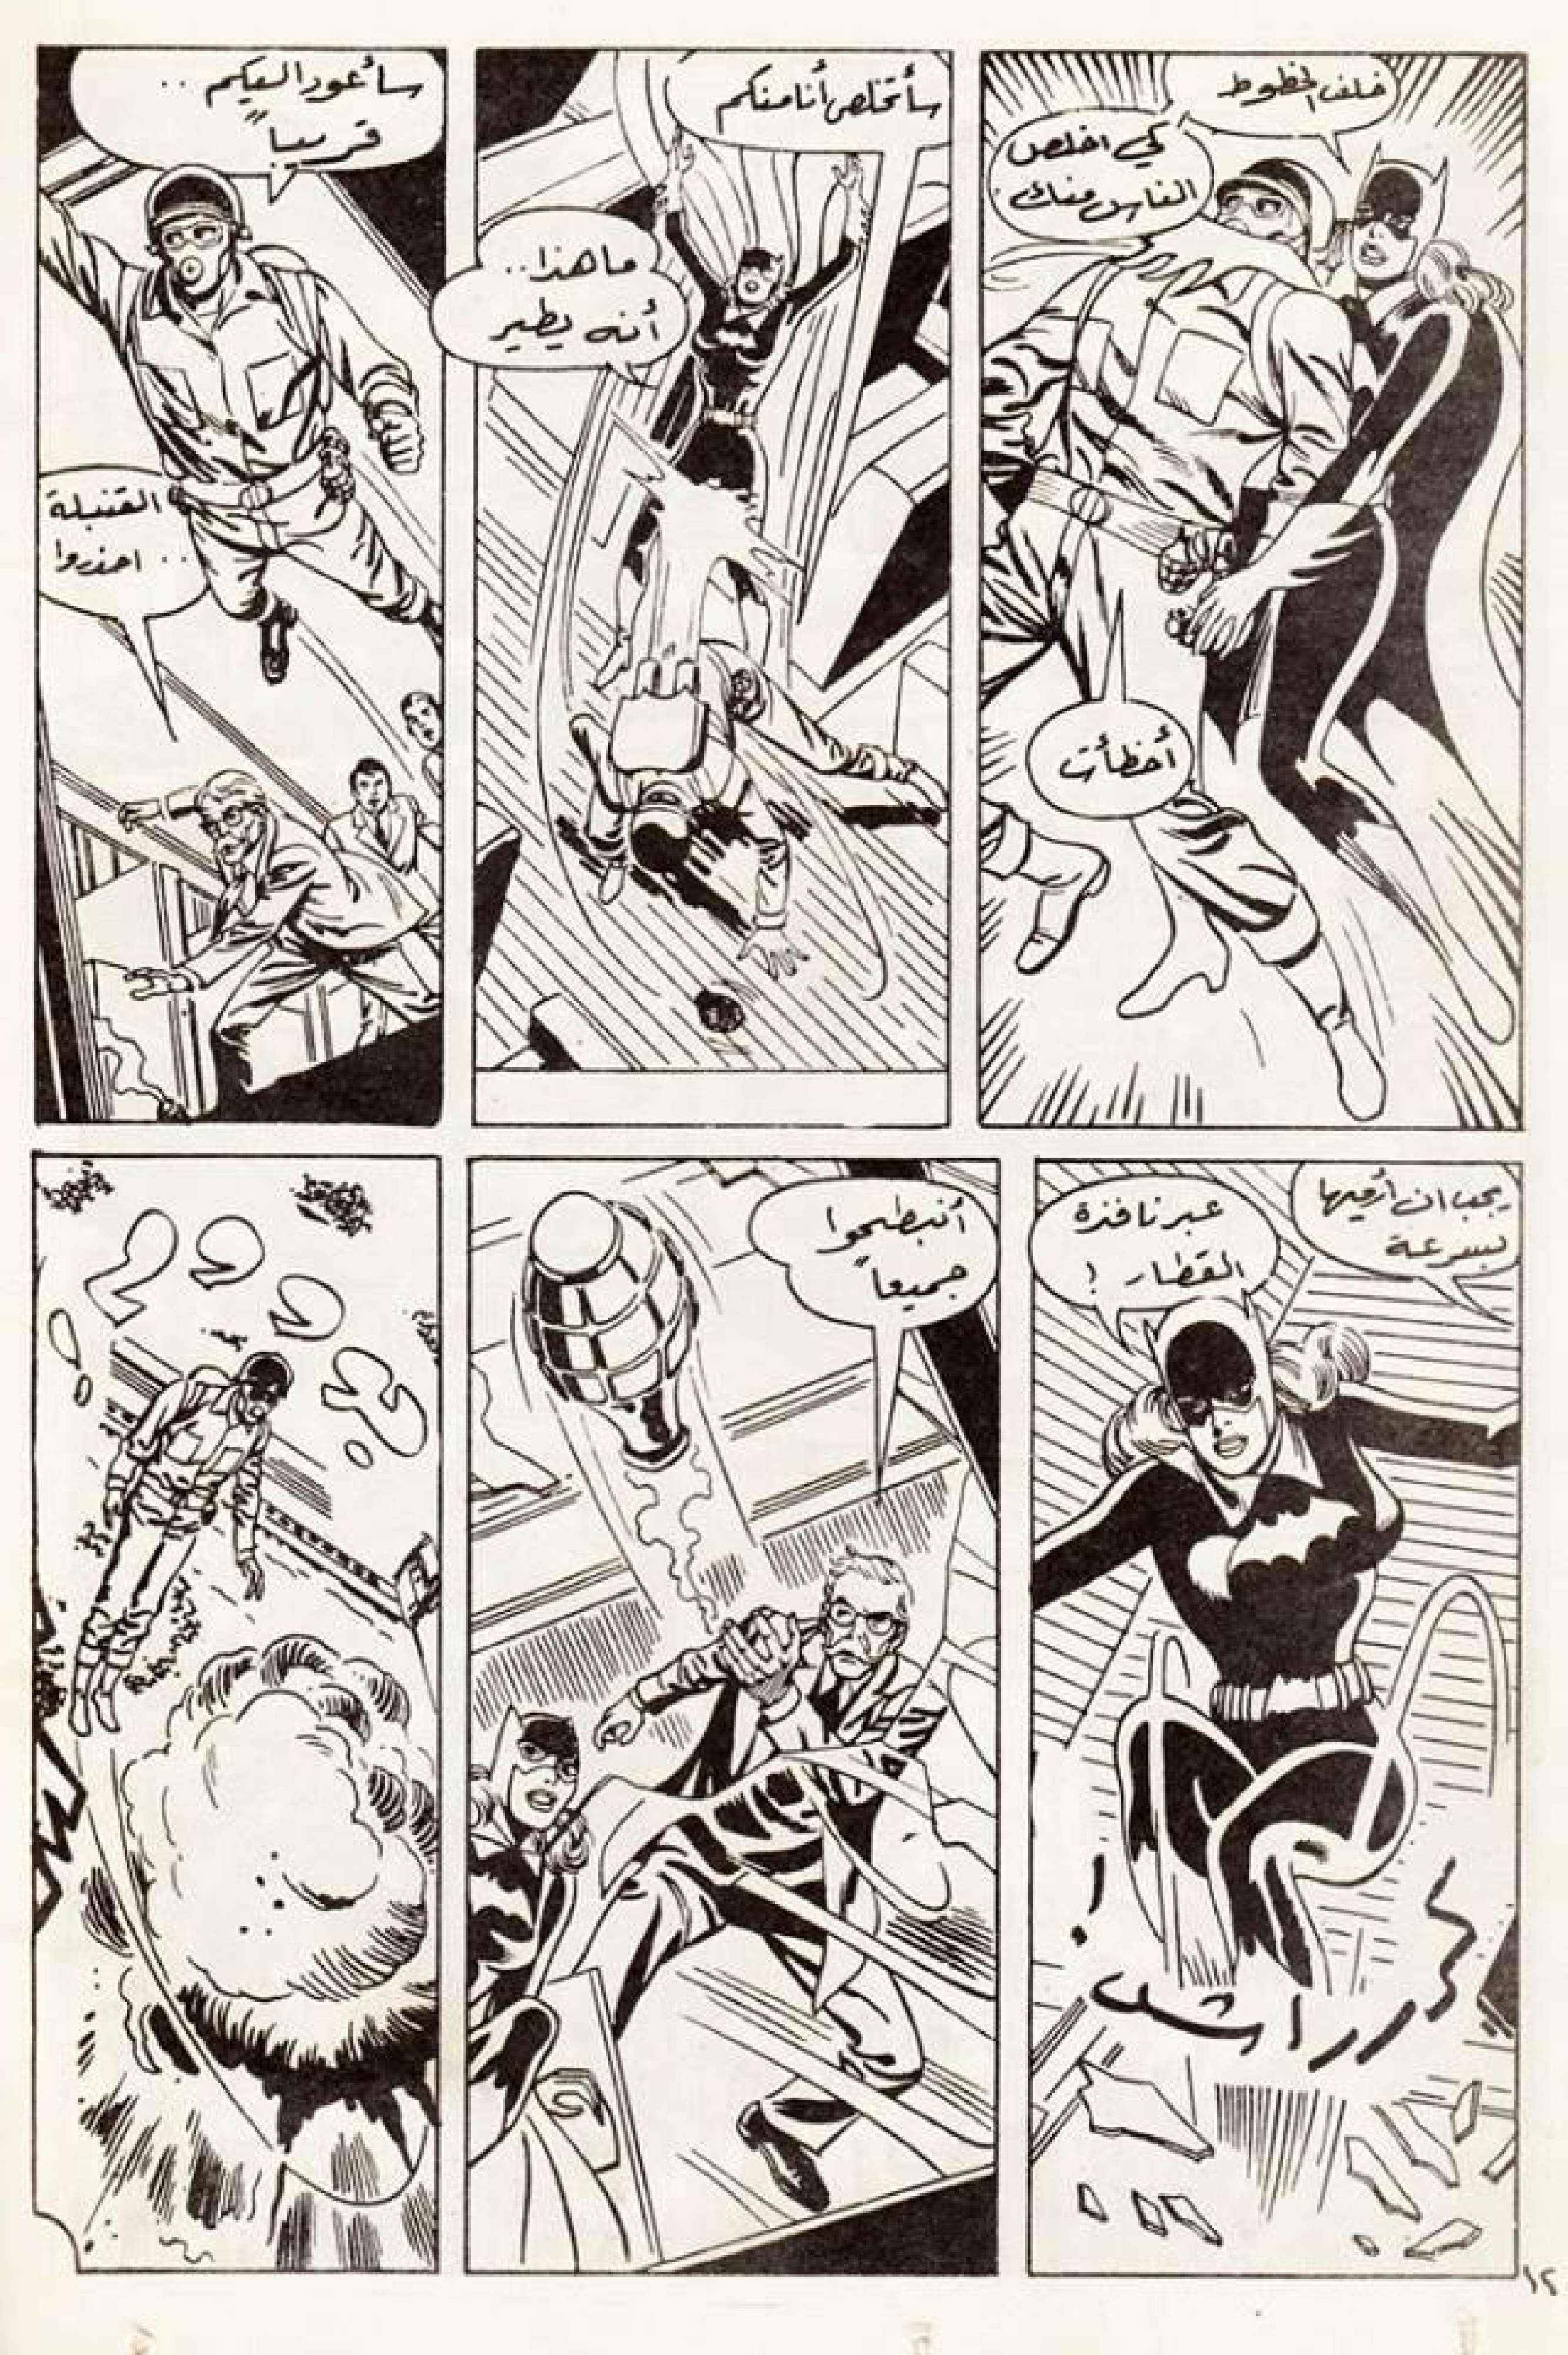 خلف الخطوط
كي اخلص
الناس منك
أخطأت
سأتخلص أنا منكم
ما هذا..
أنه يطير
سأعود اليكم ..
قريباً
القنبلة
.. احذروا
يجب ان أرميها
بسرعة
عبر نافذة
القطار !
كرراش !
أنبطحوا
جميعاً
١٢